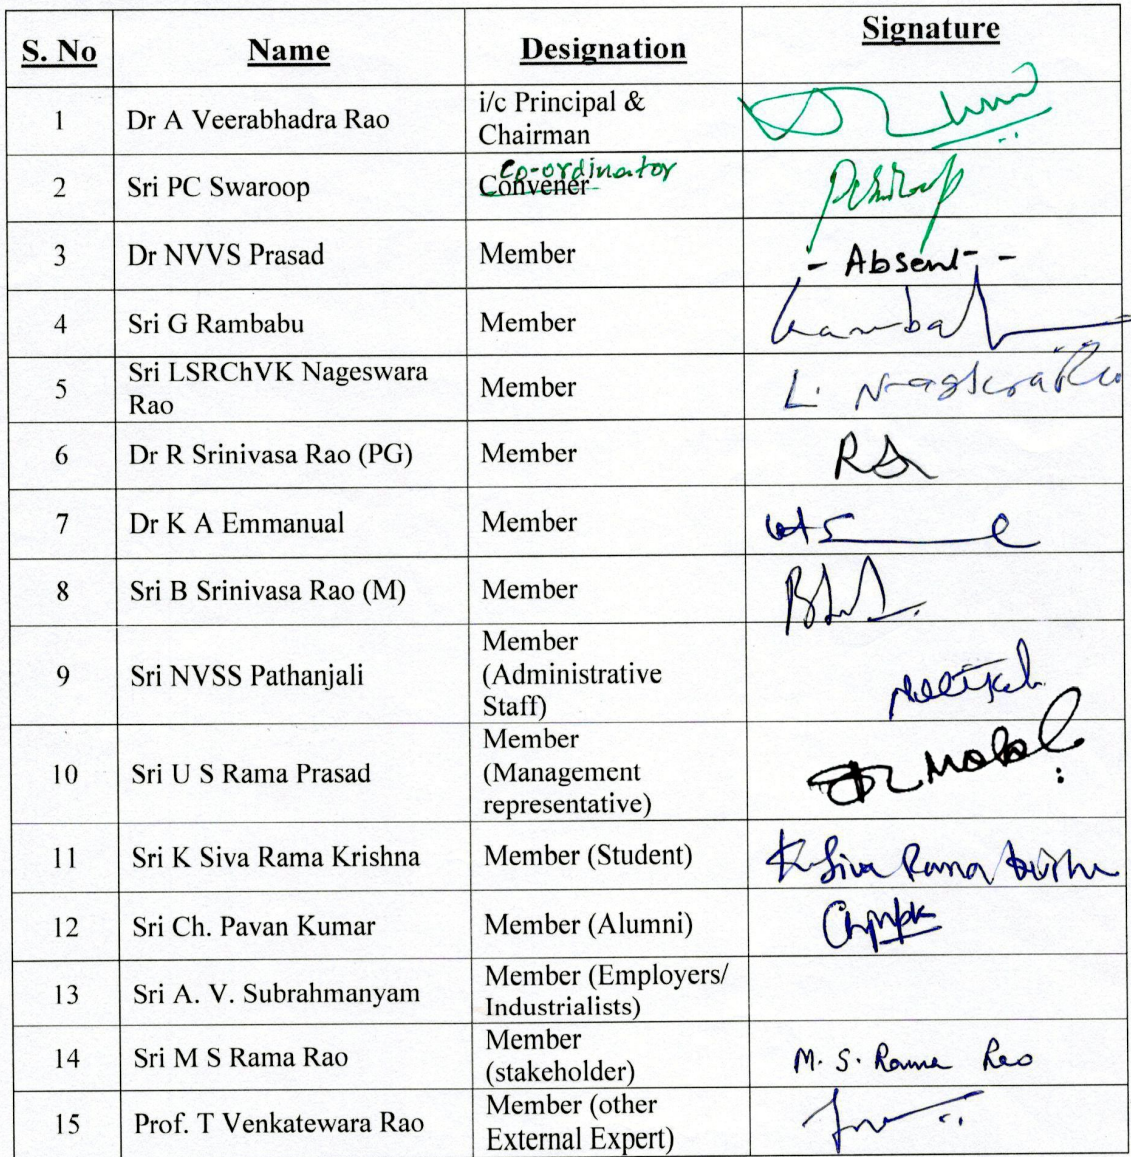 S. No Name Designation Signature
1 Dr A Veerabhadra Rao i/c Principal &
Chairman
Co-ordinator
2 Sri PC Swaroop Convener
3 Dr NVVS Prasad Member - Absent -
4 Sri G Rambabu Member
Sri LSRChVK Nageswara
5 Rao Member
6 Dr R Srinivasa Rao (PG) Member
7 Dr K A Emmanual Member
8 Sri B Srinivasa Rao (M) Member
Member
9 Sri NVSS Pathanjali (Administrative
Staff)
Member
10 Sri U S Rama Prasad (Management
representative)
11 Sri K Siva Rama Krishna Member (Student) K Siva Rama Krishna
12 Sri Ch. Pavan Kumar Member (Alumni)
13 Sri A. V. Subrahmanyam Member (Employers/
Industrialists)
14 Sri M S Rama Rao Member
(stakeholder) M. S. Rama Rao
15 Prof. T Venkatewara Rao Member (other
External Expert)